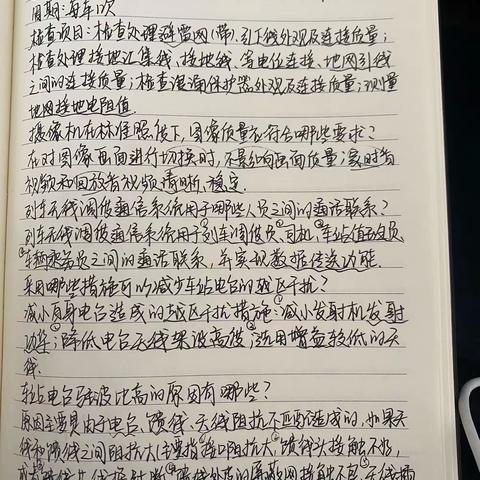 周期：每年1次
检查项目：检查处理避雷网(带)、引下线外观及连接质量；
检查处理接地汇集线、接地线、等电位连接、地网引线
之间的连接质量；检查浪涌保护器外观及连接质量；测量
地网接地电阻值.
摄像机在标准照度下，图像质量应符合哪些要求？
在对图像画面进行切换时，不影响画面质量；实时音
视频和回放音视频清晰、稳定.
列车无线调度通信系统用于哪些人员之间的通话联系？
列车无线调度通信系统用于①列车调度员、②司机、③车站值班员
④车辆乘务员之间的通话联系，并实现数据传送功能.
采用哪些措施可以减少车站电台的越区干扰？
减小车站电台造成的越区干扰措施：减小发射机发射
功率；降低电台天线架设高度；选用增益较低的天
线.
车站电台驻波比高的原因有哪些？
原因主要是由于电台、馈线、天线阻抗不匹配造成的，如果天
线和馈线之间阻抗大(主要指接口阻抗大，馈线头接触不好，
馈线外皮的屏蔽网接触不良